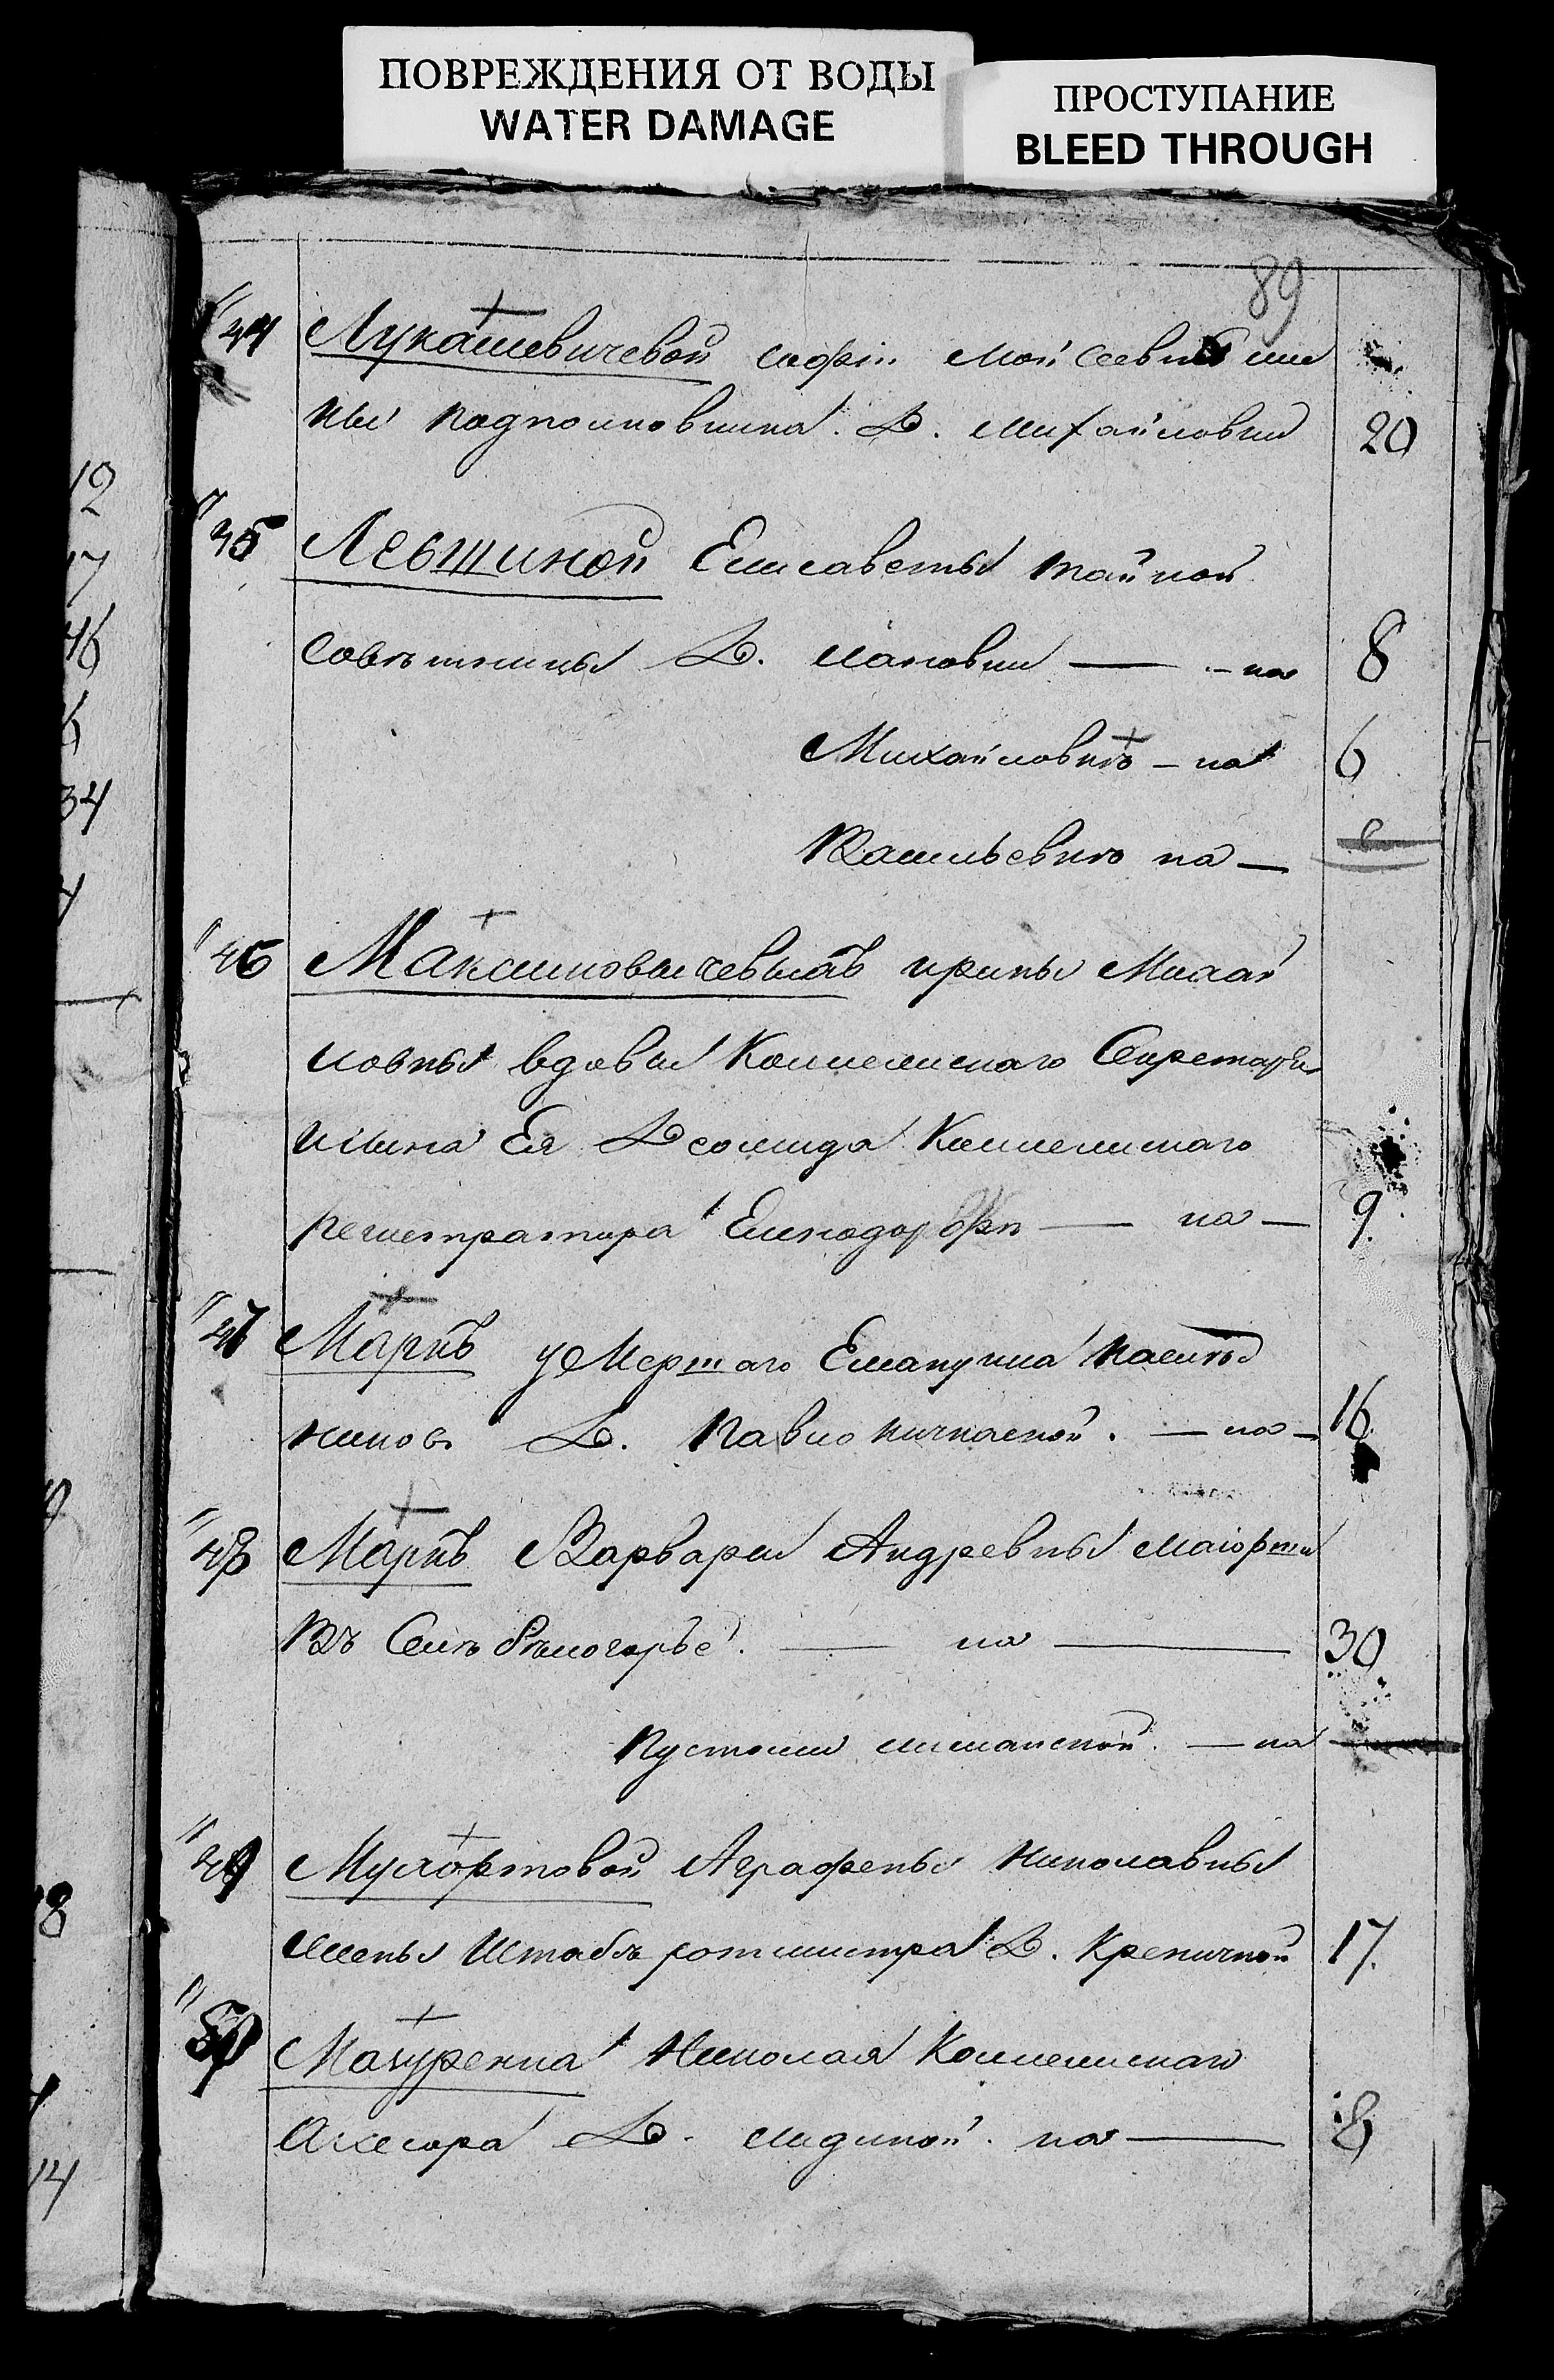 ПОВРЕЖДЕНИЯ ОТ ВОДЫ
WATER DAMAGE
ПРОСТУПАНИЕ
BLEED THROUGH
89
44 Лукашевичевой софіи мойсеевны же
ны подполковника. Д. михайловки 20
45 Левшиной Елисаветы тайной
совѣтницы Д. на 8
Михайловкѣ – на 6
Васильевкѣ на —
46 Максимовичевыхъ ирины Михай
ловны вдовы Коллежскаго Секретаря
и сына Ея Леонида Коллежскаго
регистратора — на — 9
47 Маркъ умершаго Емануила наслѣд
никовъ Д. Павло — на — 16
48 Маркъ Варвары Андревны маіорши
Въ Селѣ бѣлогорье. — на — 30
Пустоши — на
49 Мухортовой Аграфены Николавны
жены Штабъ ротмистра Д. Креничной 17.
50 Мазуренка Николая Коллежскаго
Асесора Д. на — 8
12
17
46
6
34
4
18
14